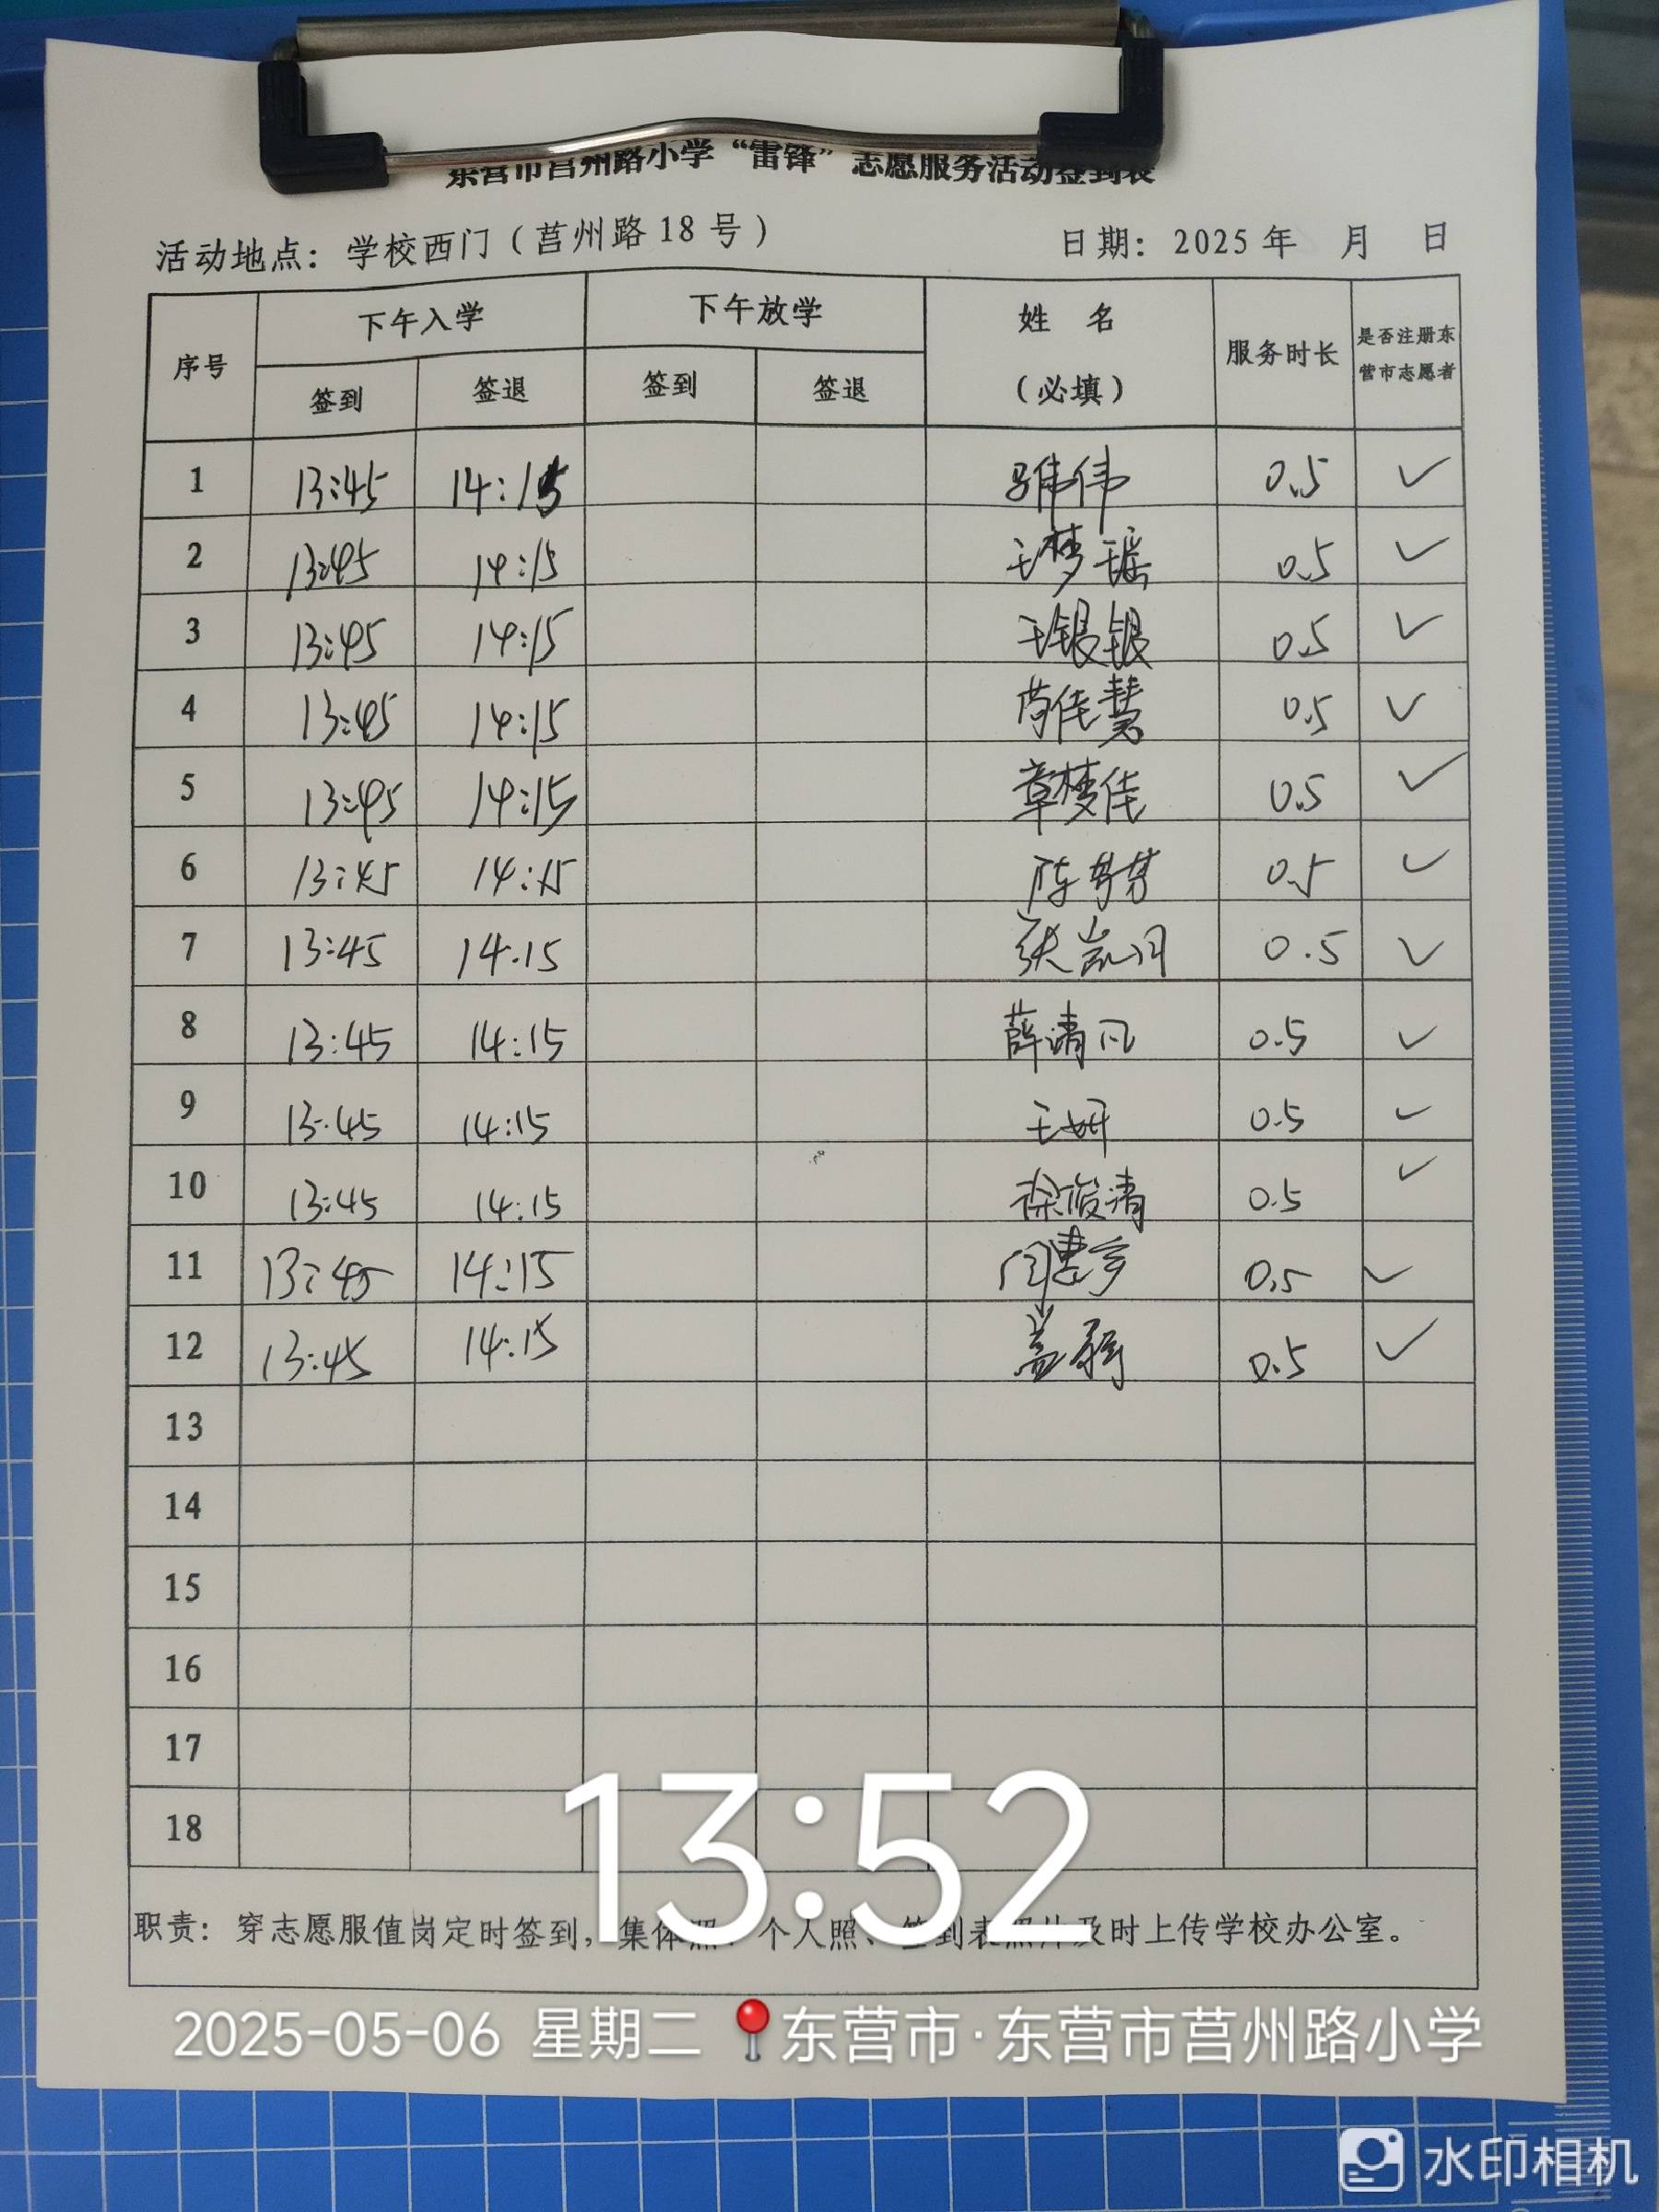 东营市莒州路小学“雷锋”志愿服务活动签到表
活动地点：学校西门（莒州路18号） 日期：2025年 月 日
序号 下午入学 下午放学 姓 名 （必填） 服务时长 是否注册东营市志愿者
签到 签退 签到 签退
1 13:45 14:15 0.5 ✓
2 13:45 14:15 王梦瑶 0.5 ✓
3 13:45 14:15 王银银 0.5 ✓
4 13:45 14:15 苟佳慧 0.5 ✓
5 13:45 14:15 章梦佳 0.5 ✓
6 13:45 14:15 陈芳芳 0.5 ✓
7 13:45 14.15 张凯月 0.5 ✓
8 13:45 14:15 薛清凡 0.5 ✓
9 13:45 14:15 王妍 0.5 ✓
10 13:45 14:15 徐俊清 0.5 ✓
11 13:45 14:15 0.5 ✓
12 13:45 14:15 0.5 ✓
13
14
15
16
17
18
13:52
职责：穿志愿服值岗定时签到，集体照、个人照、签到表照片及时上传学校办公室。
2025-05-06 星期二 东营市·东营市莒州路小学
水印相机